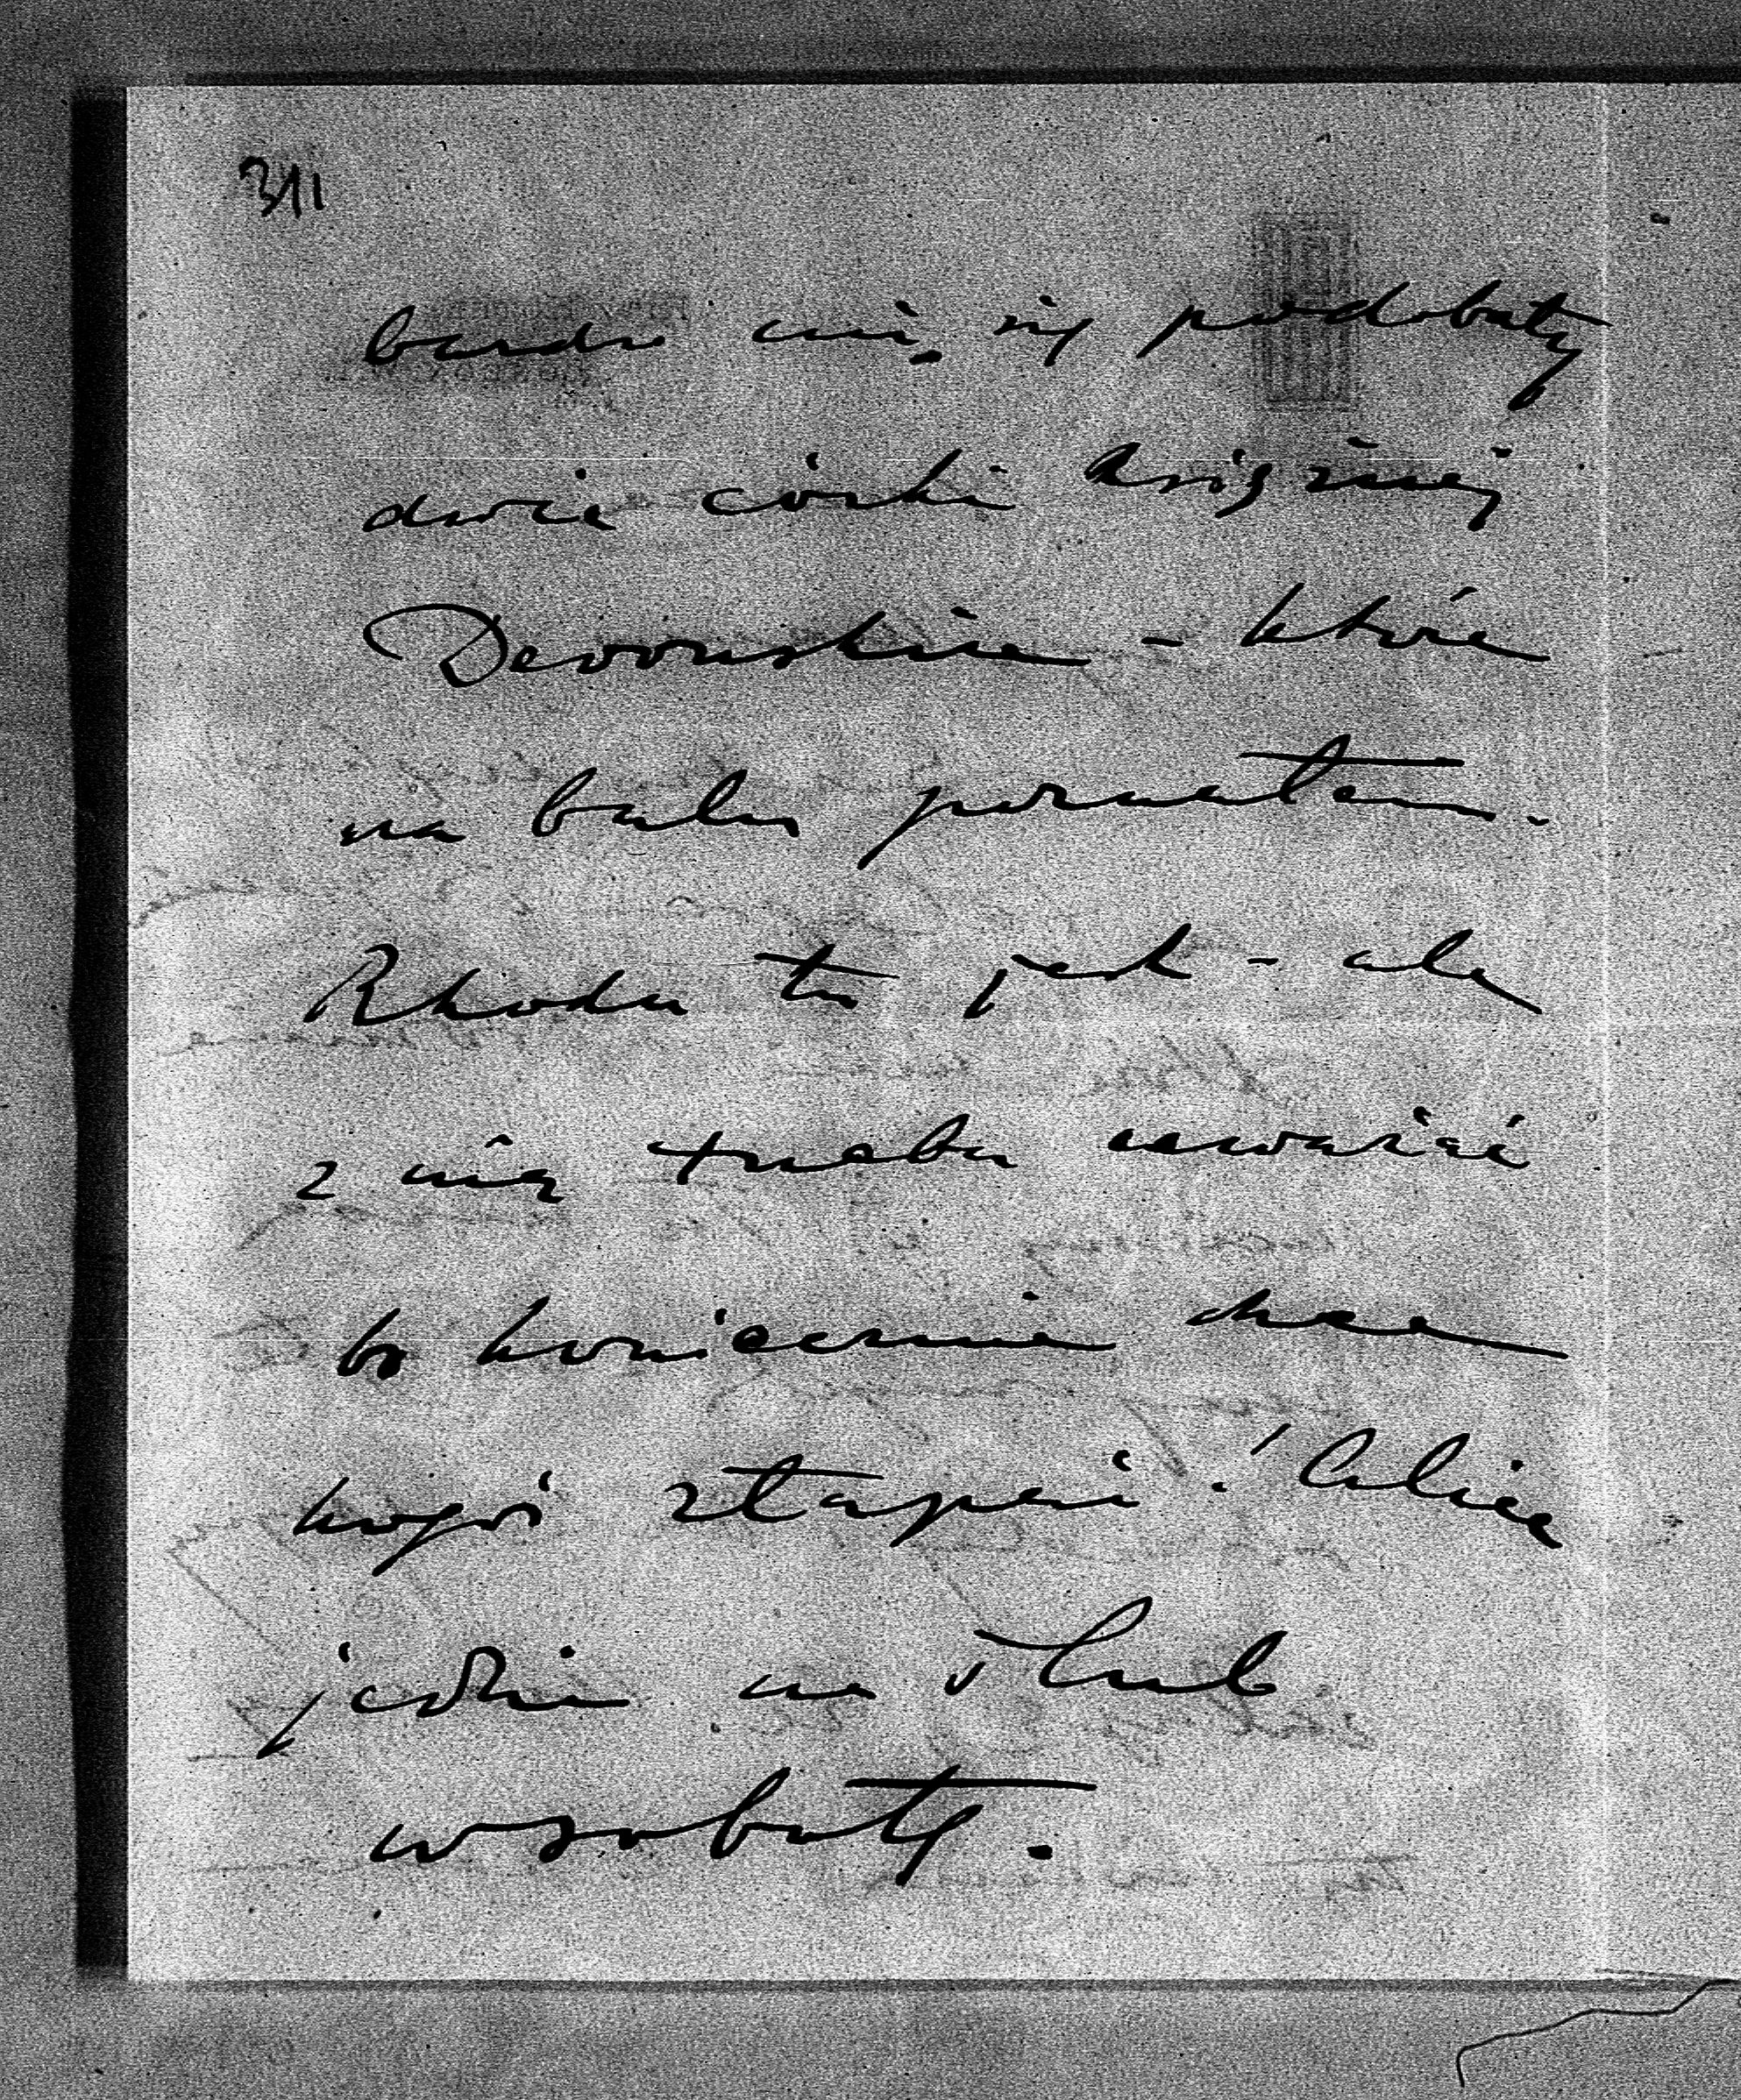 311
bardzo mi się podobały
dwie córki księżnej
Devonshire - które
na balu poznałam.
Rhoda tu jest - ale
z nią trzeba uważać
bo koniecznie chce
kogoś złapać!
jedzie na ślub
w sobotę.